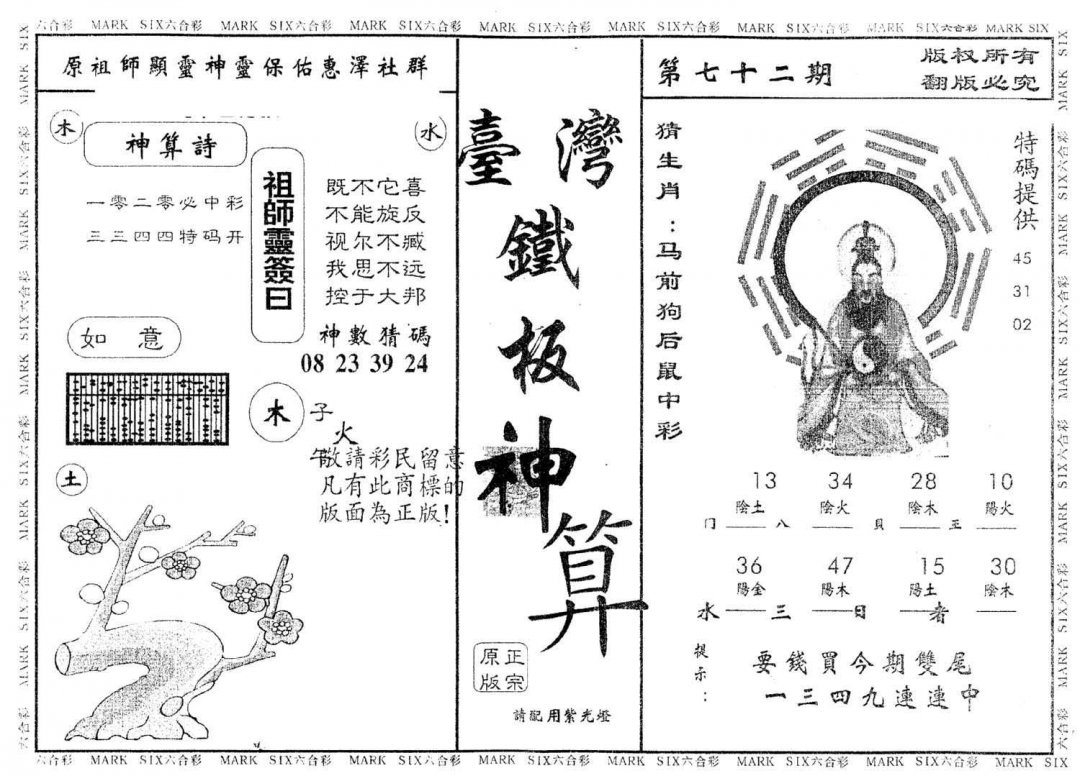 六合彩 MARK SIX六合彩 MARK SIX六合彩 MARK SIX六合彩 MARK SIX六合彩 MARK SIX六合彩 MARK SIX六合彩 MARK SIX六合彩 MARK SIX
原祖師顯靈神靈保佑惠澤社群
木
神算詩
水
一零二零必中彩
三三四四特码开
祖師靈簽曰
既不它喜
不能旋反
视尔不臧
我思不远
控于大邦
神數猜碼
08 23 39 24
如意
木
子
火
午
敬請彩民留意
凡有此商標的
版面為正版!
土
臺灣
鐵
板
神
算
正宗
原版
請配用紫光燈
第七十二期
版权所有
翻版必究
猜生肖:马前狗后鼠中彩
特碼提供
45
31
02
13 34 28 10
陰土 陰火 陰木 陽火
门 八 貝 王
36 47 15 30
陽金 陽木 陽土 陰木
水 三 日 者
提示:
要錢買今期雙尾
一三四九連連中
六合彩 MARK SIX六合彩 MARK SIX六合彩 MARK SIX六合彩 MARK SIX六合彩 MARK SIX六合彩 MARK SIX六合彩 MARK SIX六合彩 MARK SIX